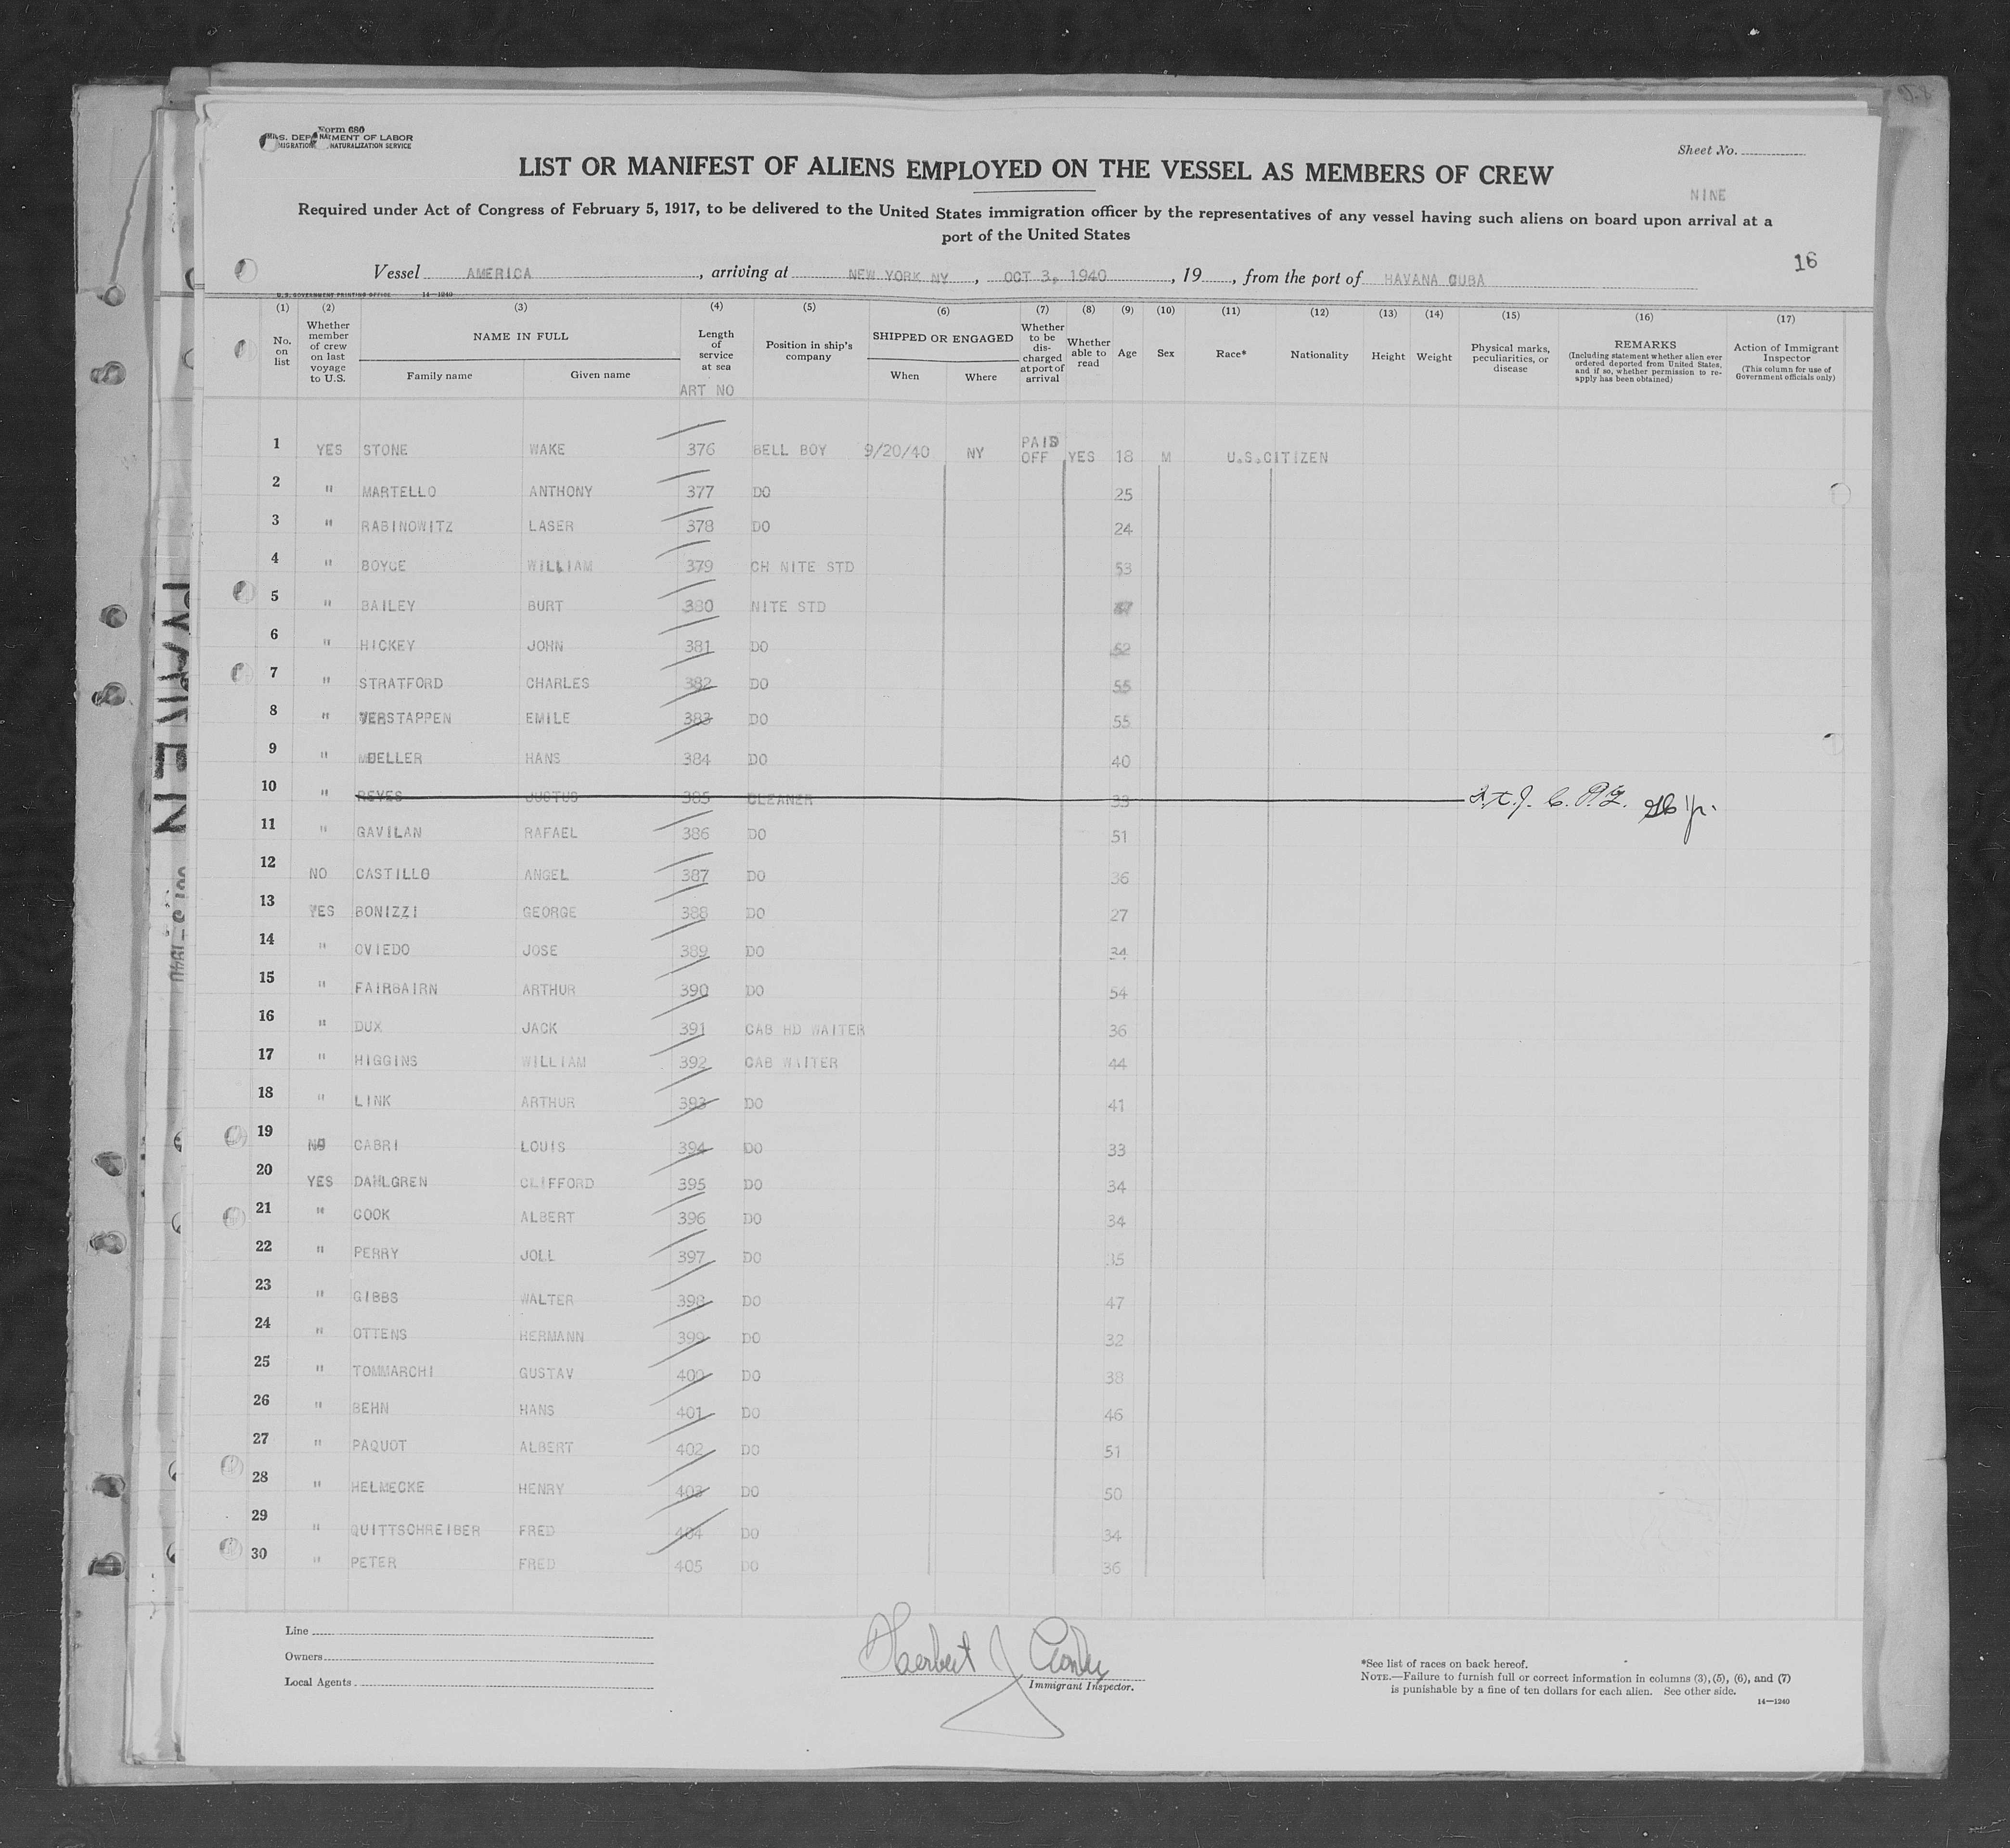 Form 680
U.S. DEPARTMENT OF LABOR
IMMIGRATION NATURALIZATION SERVICE
Sheet No.
LIST OR MANIFEST OF ALIENS EMPLOYED ON THE VESSEL AS MEMBERS OF CREW
NINE
Required under Act of Congress of February 5, 1917, to be delivered to the United States immigration officer by the representatives of any vessel having such aliens on board upon arrival at a
port of the United States
16
Vessel AMERICA, arriving at NEW YORK NY, OCT 3, 1940, 19, from the port of HAVANA CUBA
U.S. GOVERNMENT PRINTING OFFICE 14—1240
(1) (2) (3) (4) (5) (6) (7) (8) (9) (10) (11) (12) (13) (14) (15) (16) (17)
No. on list
Whether member of crew on last voyage to U.S.
NAME IN FULL
Family name
Given name
Length of service at sea
ART NO
Position in ship's company
SHIPPED OR ENGAGED
When
Where
Whether to be discharged at port of arrival
Whether able to read
Age
Sex
Race*
Nationality
Height
Weight
Physical marks, peculiarities, or disease
REMARKS
(Including statement whether alien ever ordered deported from United States, and if so, whether permission to re-apply has been obtained)
Action of Immigrant Inspector
(This column for use of Government officials only)
1 YES STONE WAKE 376 BELL BOY 9/20/40 NY PAID OFF YES 18 M U.S.CITIZEN
2 " MARTELLO ANTHONY 377 DO 25
3 " RABINOWITZ LASER 378 DO 24
4 " BOYCE WILLIAM 379 CH NITE STD 53
5 " BAILEY BURT 380 NITE STD
6 " HICKEY JOHN 381 DO 52
7 " STRATFORD CHARLES 382 DO 55
8 " VERSTAPPEN EMILE 383 DO 55
9 " MUELLER HANS 384 DO 40
10 " REYES JUSTUS 385 CLEANER 33
11 " GAVILAN RAFAEL 386 DO 51
12 NO CASTILLO ANGEL 387 DO 36
13 YES BONIZZI GEORGE 388 DO 27
14 " OVIEDO JOSE 389 DO 34
15 " FAIRBAIRN ARTHUR 390 DO 54
16 " DUX JACK 391 CAB HD WAITER 36
17 " HIGGINS WILLIAM 392 CAB WAITER 44
18 " LINK ARTHUR 393 DO 41
19 NO CABRI LOUIS 394 DO 33
20 YES DAHLGREN CLIFFORD 395 DO 34
21 " COOK ALBERT 396 DO 34
22 " PERRY JOLL 397 DO 35
23 " GIBBS WALTER 398 DO 47
24 " OTTENS HERMANN 399 DO 32
25 " TOMMARCHI GUSTAV 400 DO 38
26 " BEHN HANS 401 DO 46
27 " PAQUOT ALBERT 402 DO 51
28 " HELMECKE HENRY 403 DO 50
29 " QUITTSCHREIBER FRED 404 DO 34
30 " PETER FRED 405 DO 36
Line
Owners
Local Agents
Herbert J
Immigrant Inspector.
*See list of races on back hereof.
NOTE.—Failure to furnish full or correct information in columns (3), (5), (6), and (7)
is punishable by a fine of ten dollars for each alien. See other side.
14—1240